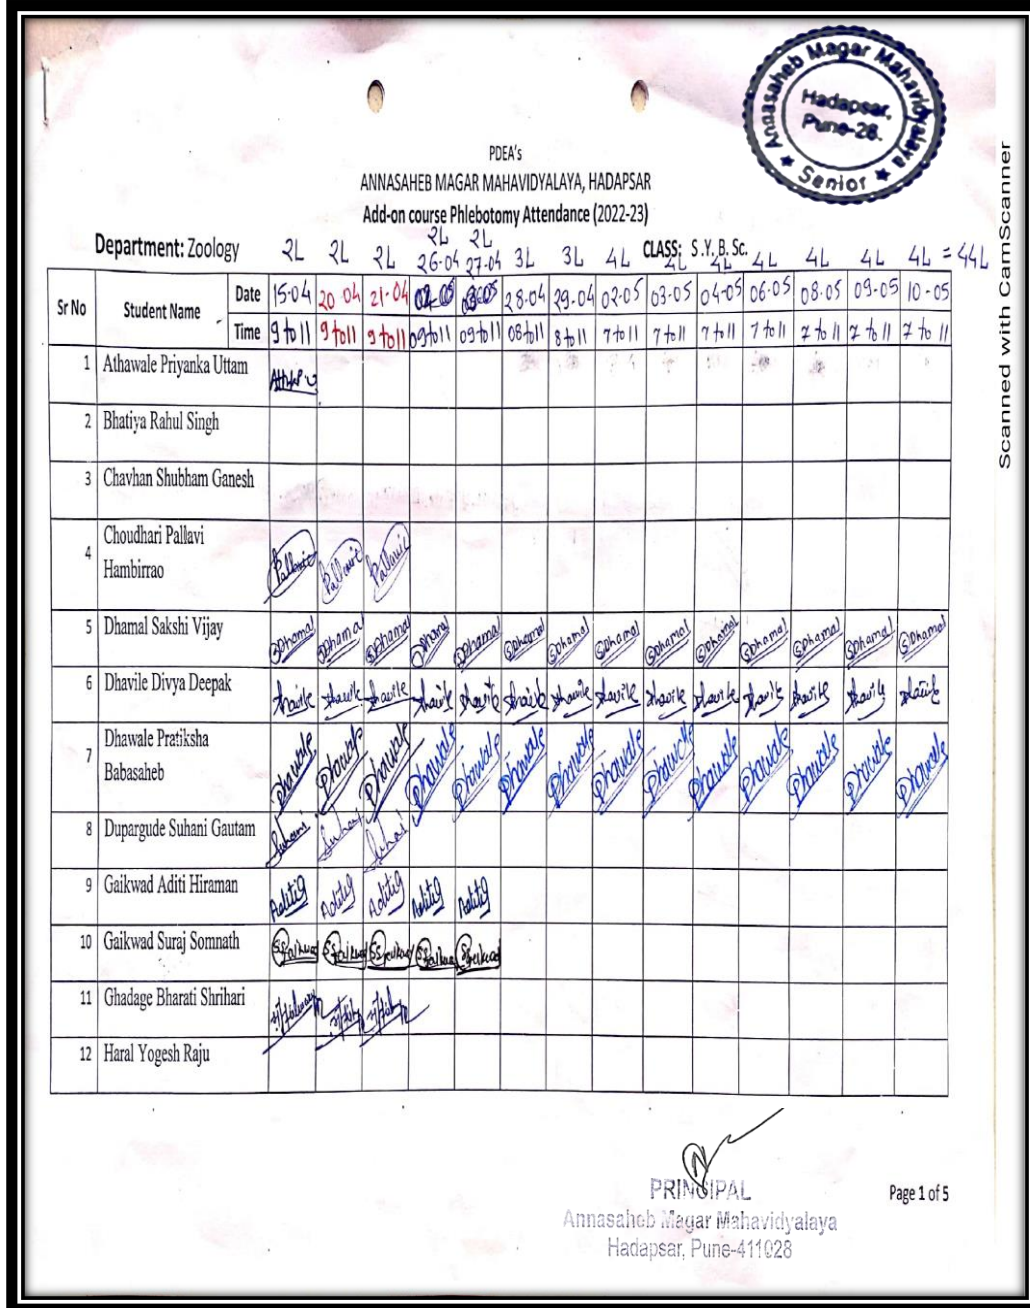 Annasaheb Magar Mahavidyalaya
Hadapsar,
Pune-28.
★ Senior ★
Scanned with CamScanner
PDEA's
ANNASAHEB MAGAR MAHAVIDYALAYA, HADAPSAR
Add-on course Phlebotomy Attendance (2022-23)
२L २L
Department: Zoology २L २L २L 26-04 27-04 3L 3L 4L CLASS: S.Y.B.Sc. 4L 4L 4L 4L 4L 4L = 44L
Sr No Student Name Date 15-04 20 04 21-04 28-04 29-04 02-05 03-05 04-05 06-05 08-05 09-05 10-05
Time 9 to 11 9 to 11 9 to 11 09 to 11 09 to 11 08 to 11 8 to 11 7 to 11 7 to 11 7 to 11 7 to 11 7 to 11 7 to 11 7 to 11
1 Athawale Priyanka Uttam
2 Bhatiya Rahul Singh
3 Chavhan Shubham Ganesh
4 Choudhari Pallavi
Hambirrao Pallavi Pallavi Pallavi
5 Dhamal Sakshi Vijay SDhamal SDhamal SDhamal SDhamal SDhamal SDhamal SDhamal SDhamal SDhamal SDhamal SDhamal SDhamal SDhamal SDhamal
6 Dhavile Divya Deepak Dhavile Dhavile Dhavile Dhavile Dhavile Dhavile Dhavile Dhavile Dhavile Dhavile Dhavile Dhavile Dhavile Dhavile
7 Dhawale Pratiksha
Babasaheb Dhawale Dhawale Dhawale Dhawale Dhawale Dhawale Dhawale Dhawale Dhawale Dhawale Dhawale Dhawale Dhawale Dhawale
8 Dupargude Suhani Gautam Suhani Suhani Suhani
9 Gaikwad Aditi Hiraman AditiG AditiG AditiG AditiG AditiG
10 Gaikwad Suraj Somnath SSGaikwad SSGaikwad SSGaikwad SSGaikwad SSGaikwad
11 Ghadage Bharati Shrihari
12 Haral Yogesh Raju
PRINCIPAL
Annasaheb Magar Mahavidyalaya
Hadapsar, Pune-411028
Page 1 of 5